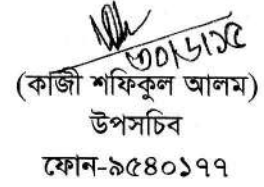 ৩০/৬/১৫
(কাজী শফিকুল আলম)
উপসচিব
ফোন-৯৫৪০১৭৭